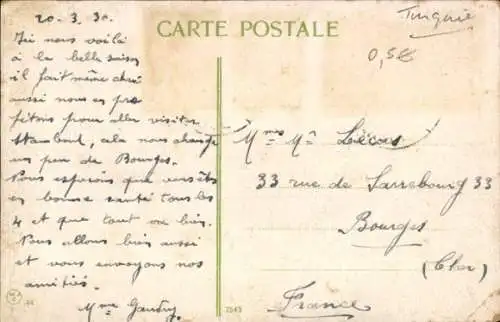 CARTE POSTALE
Turquie
0,5€
20-3.30.
Ici nous voilà
à la belle saison
il fait même chaud
aussi nous en pro
fitons pour aller visiter
Stamboul, cela nous change
un peu de Bourges.
Nous espérons que vous êtes
en bonne santé tous les
4 et que tout va bien.
Nous allons bien aussi
et vous envoyons nos
amitiés.
Mme Gaudry
Mme Mr Lécas
33 rue de Sarrebourg 33
Bourges
(Cher)
France